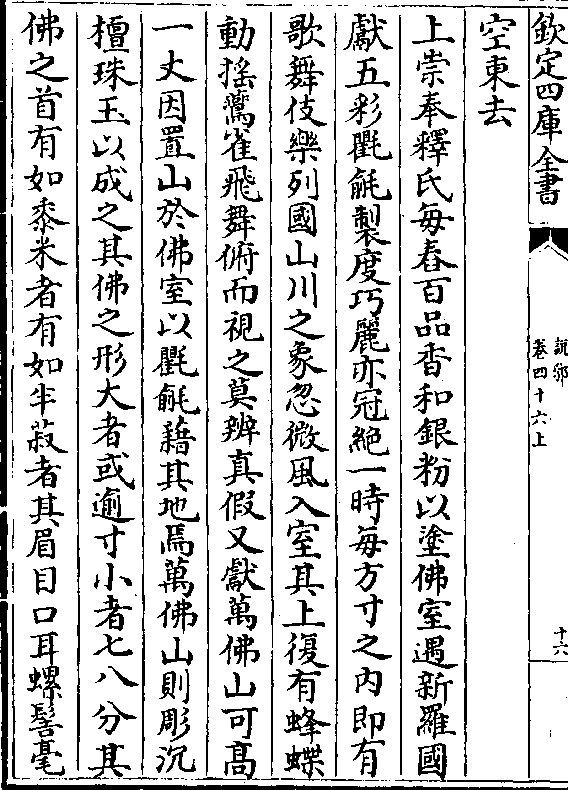 欽定四庫全書
說郛
卷四十六上
十六
空東去
上崇奉釋氏每舂百品香和銀粉以塗佛室遇新羅國
獻五彩氍毹製度巧麗亦冠絕一時每方寸之内即有
歌舞伎樂列國山川之象忽微風入室其上復有蜂蝶
動搖鷰雀飛舞俯而視之莫辨真假又獻萬佛山可高
一丈因置山於佛室以氍毹藉其地焉萬佛山則彫沉
檀珠玉以成之其佛之形大者或逾寸小者七八分其
佛之首有如黍米者有如半菽者其眉目口耳螺髻毫